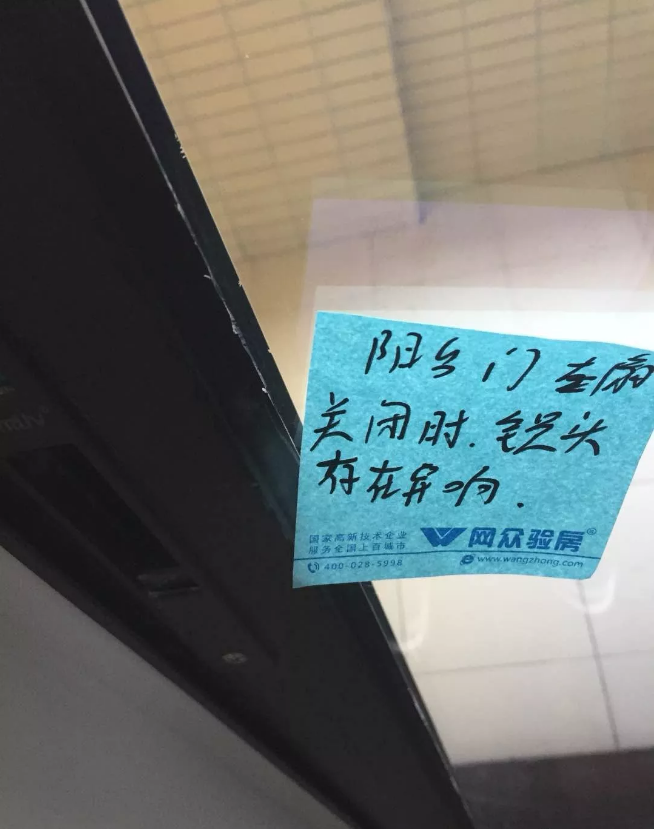 阳台门左扇
关闭时.锁头
存在异响.
国家高新技术企业
服务全国上百城市
400-028-5998
网众验房®
www.wangzhong.com